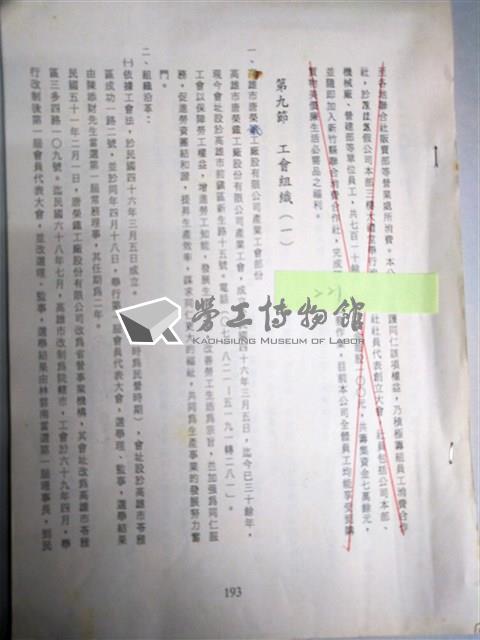 至各地聯合社販賣部等營業處所消費。本公
護同仁該項權益，乃積極籌組員工消費合作
社，於
假公司本部三樓大禮堂舉行
社社員代表創立大會，社員包括公司本部、
機械廠、營建部等單位員工，共七百一十餘
股一〇〇元，共籌集資金七萬餘元，
並隨即加入新竹縣聯合消費合作社，完成
作業，目前本公司全體員工均能享受選購
實物美價廉生活必需品之福利。
第九節　工會組織（一）
一、高雄市唐榮鐵工廠股份有限公司產業工會部份
高雄市唐榮鐵工廠股份有限公司產業工會，成
四十六年三月五日，迄今已三十餘年，
現今會址設於高雄市前鎮區新生路十五號，電話
工會以保障勞工權益，增進勞工知能，發展生
改善勞工生活為宗旨，並加強為同仁服
務，促進勞資團結和諧，提昇生產效率，謀求同仁更大的福祉，共同為生產事業的發展努力奮
鬥。
二、組織沿革：
㈠依據工會法，於民國四十六年三月五日成立
時為民營時期），會址設於高雄市苓雅
區成功一路二號，並於同年四月十八日，舉行第
屆會員代表大會，選舉理、監事，選舉結果
由陳添財先生當選第一屆常務理事，其任期為二年。
民國五十一年二月一日，唐榮鐵工廠股份有限公司改為省營事業機構，其會址改為高雄市苓雅
區三多四路一〇九號。迄民國六十八年七月，高雄市改制為院轄市，工會於六十九年四月，舉
行改制後第一屆會員代表大會，並改選理、監事，選舉結果由林碧南當選第一屆理事長，到民
193
勞工博物館
KAOHSIUNG MUSEUM OF LABOR